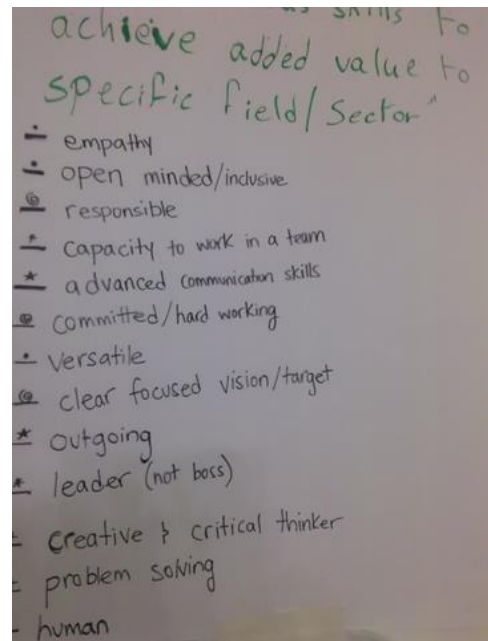 skills to
achieve added value to
specific field/sector"
- empathy
- open minded/inclusive
- responsible
- capacity to work in a team
- advanced communication skills
- committed/hard working
- versatile
- clear focused vision/target
- outgoing
- leader (not boss)
- creative & critical thinker
- problem solving
- human